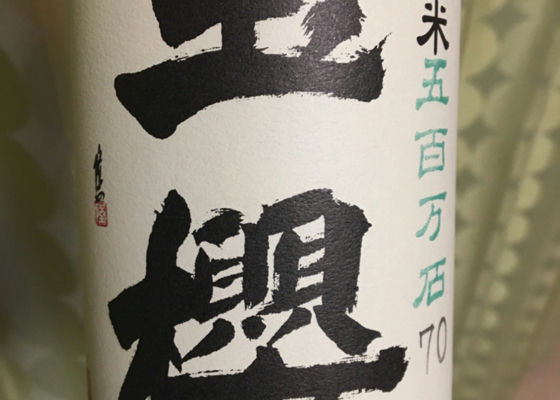 米五百万石70
玉櫻